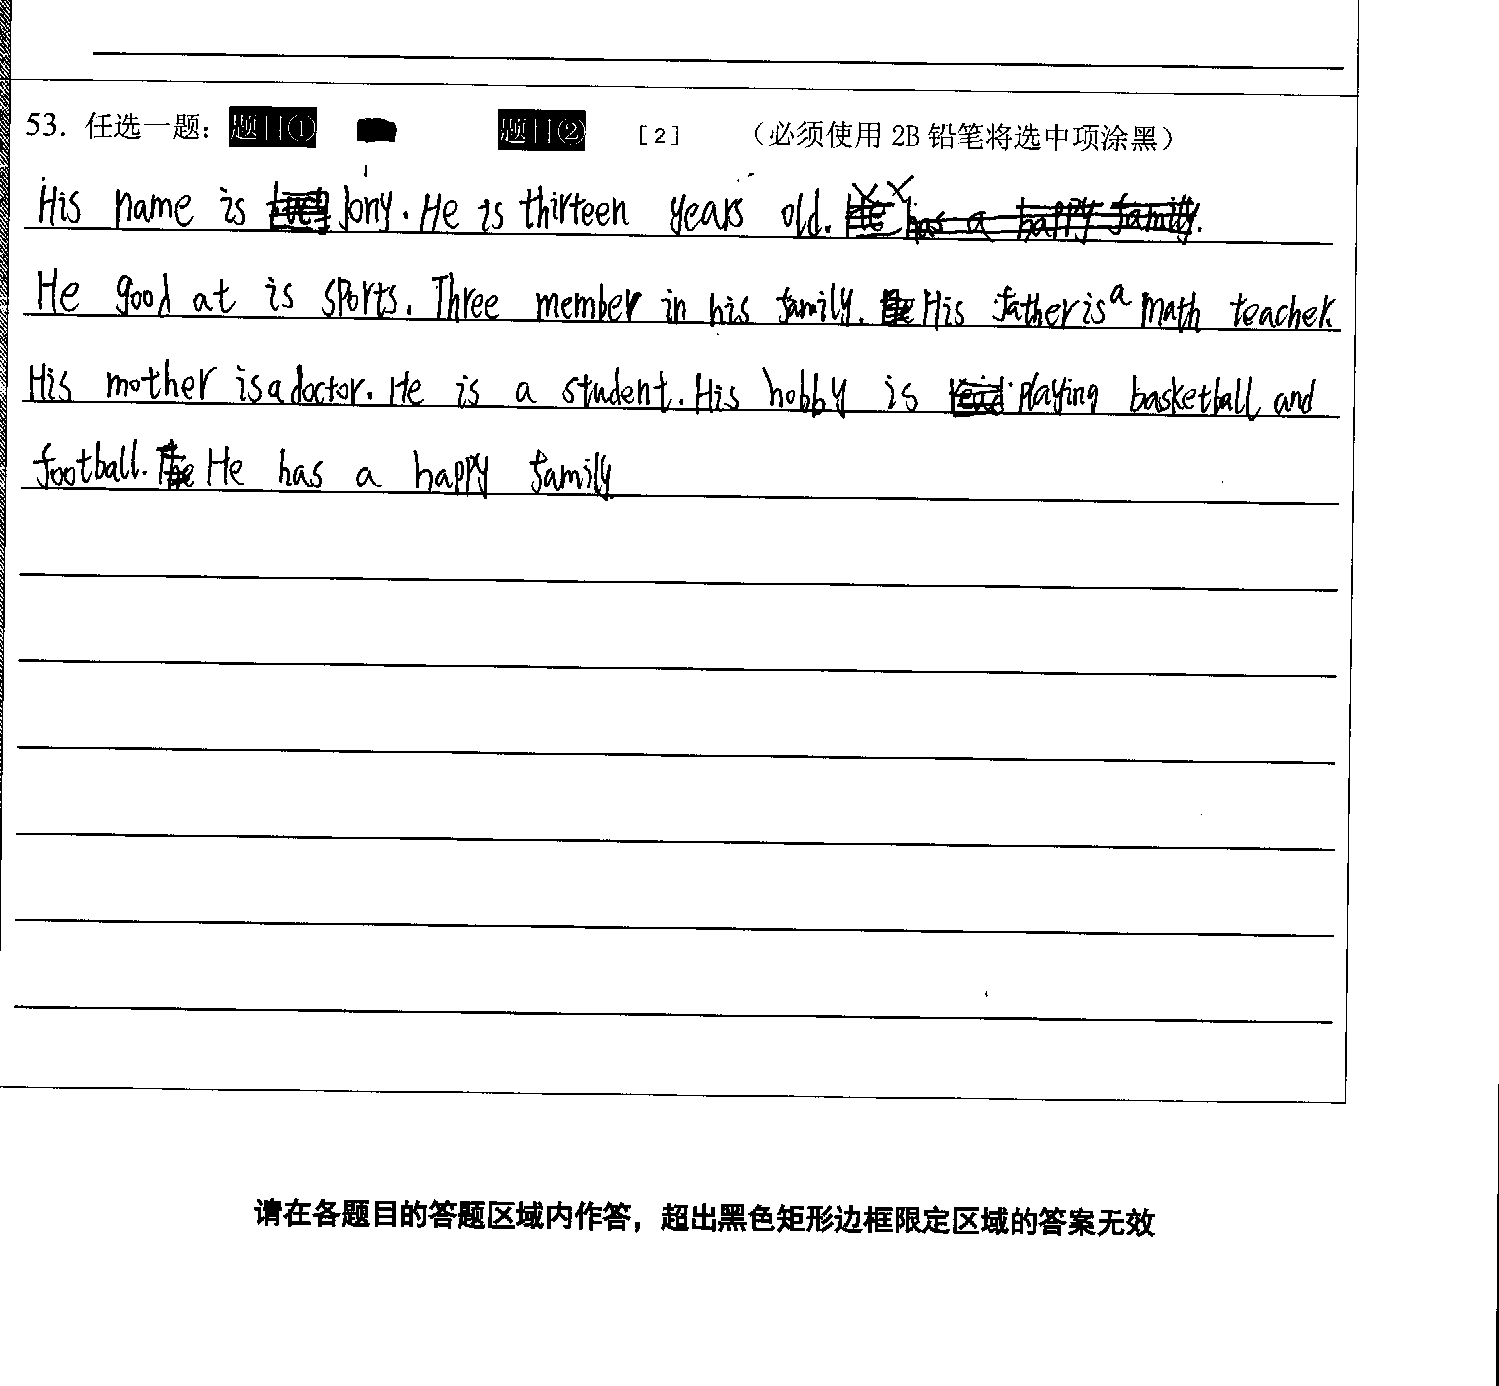 53. 任选一题： 题目① 题目② [2] （必须使用 2B 铅笔将选中项涂黑）
His name is Jony. He is thirteen years old. He has a happy family.
He good at is sports. Three member in his family. His father is a math teacher.
His mother is a doctor. He is a student. His hobby is playing basketball and
football. He has a happy family
请在各题目的答题区域内作答，超出黑色矩形边框限定区域的答案无效